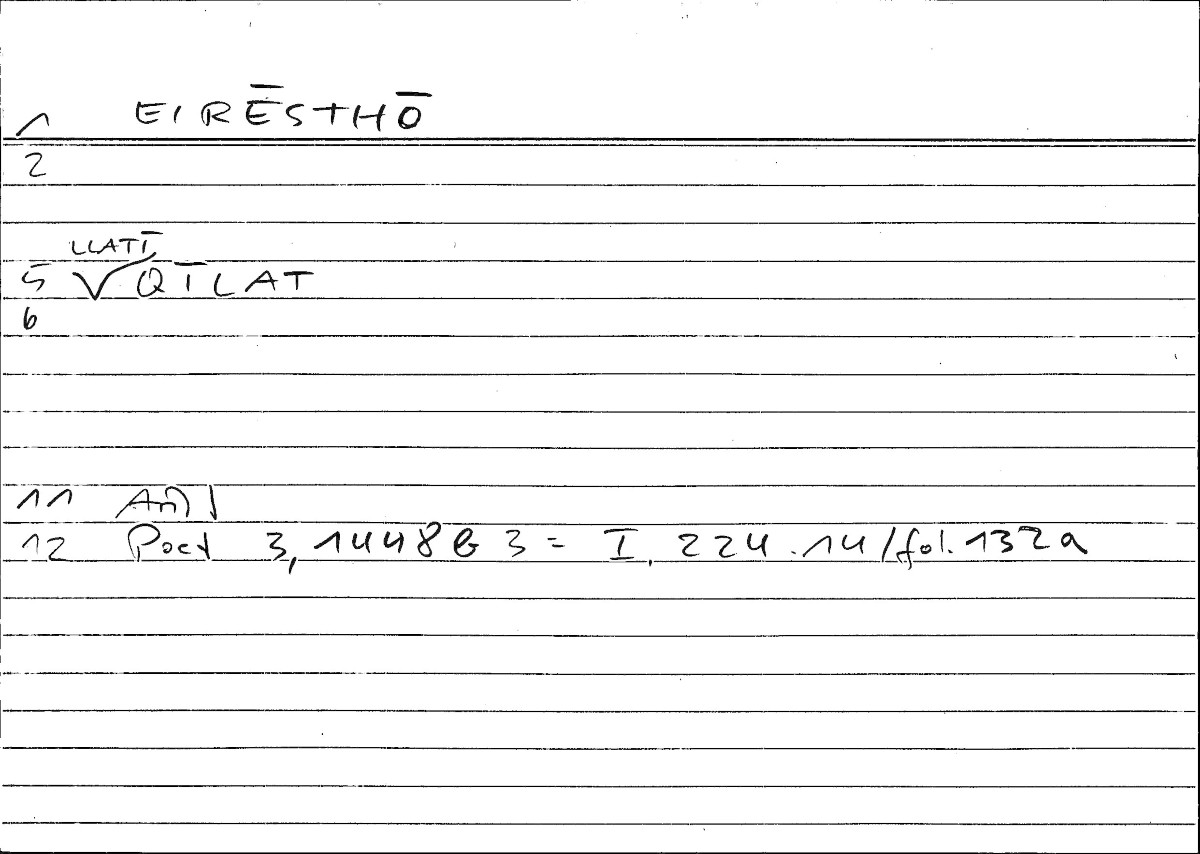 1 EIRĒSTHŌ
2
LLATĪ
5 √ QĪLAT
6
11
12 Poet 3,1448 b 3 = I, 224.14/fol.132a